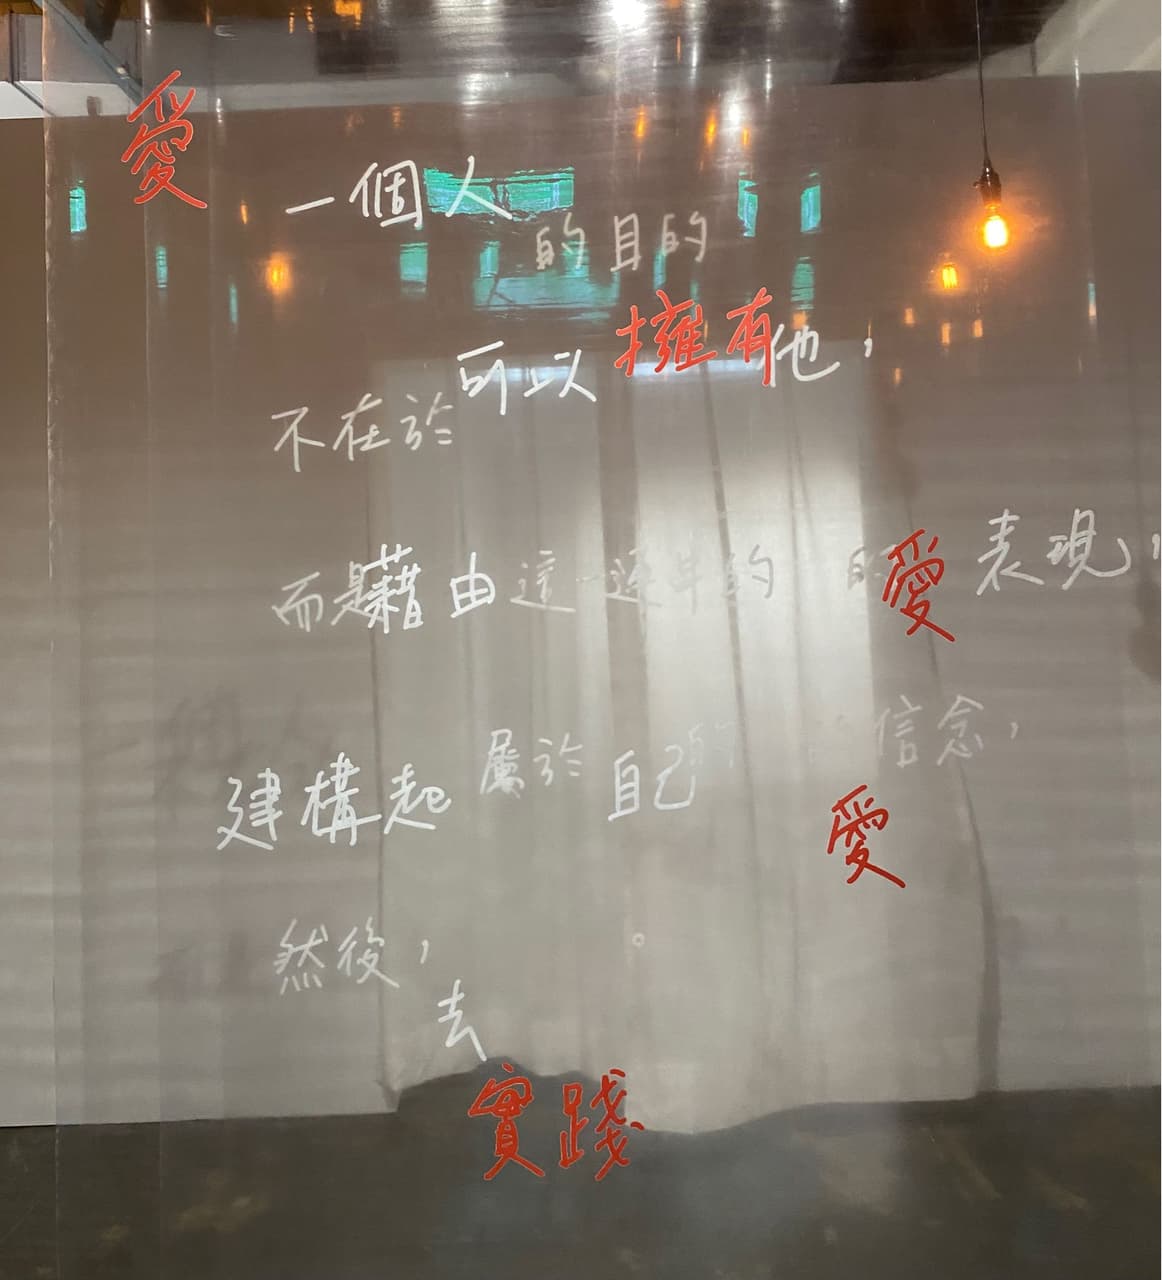 愛一個人的目的
不在於可以擁有他，
而是藉由這一連串的 的愛表現，
建構起屬於自己 信念，
愛
然後，去實踐。